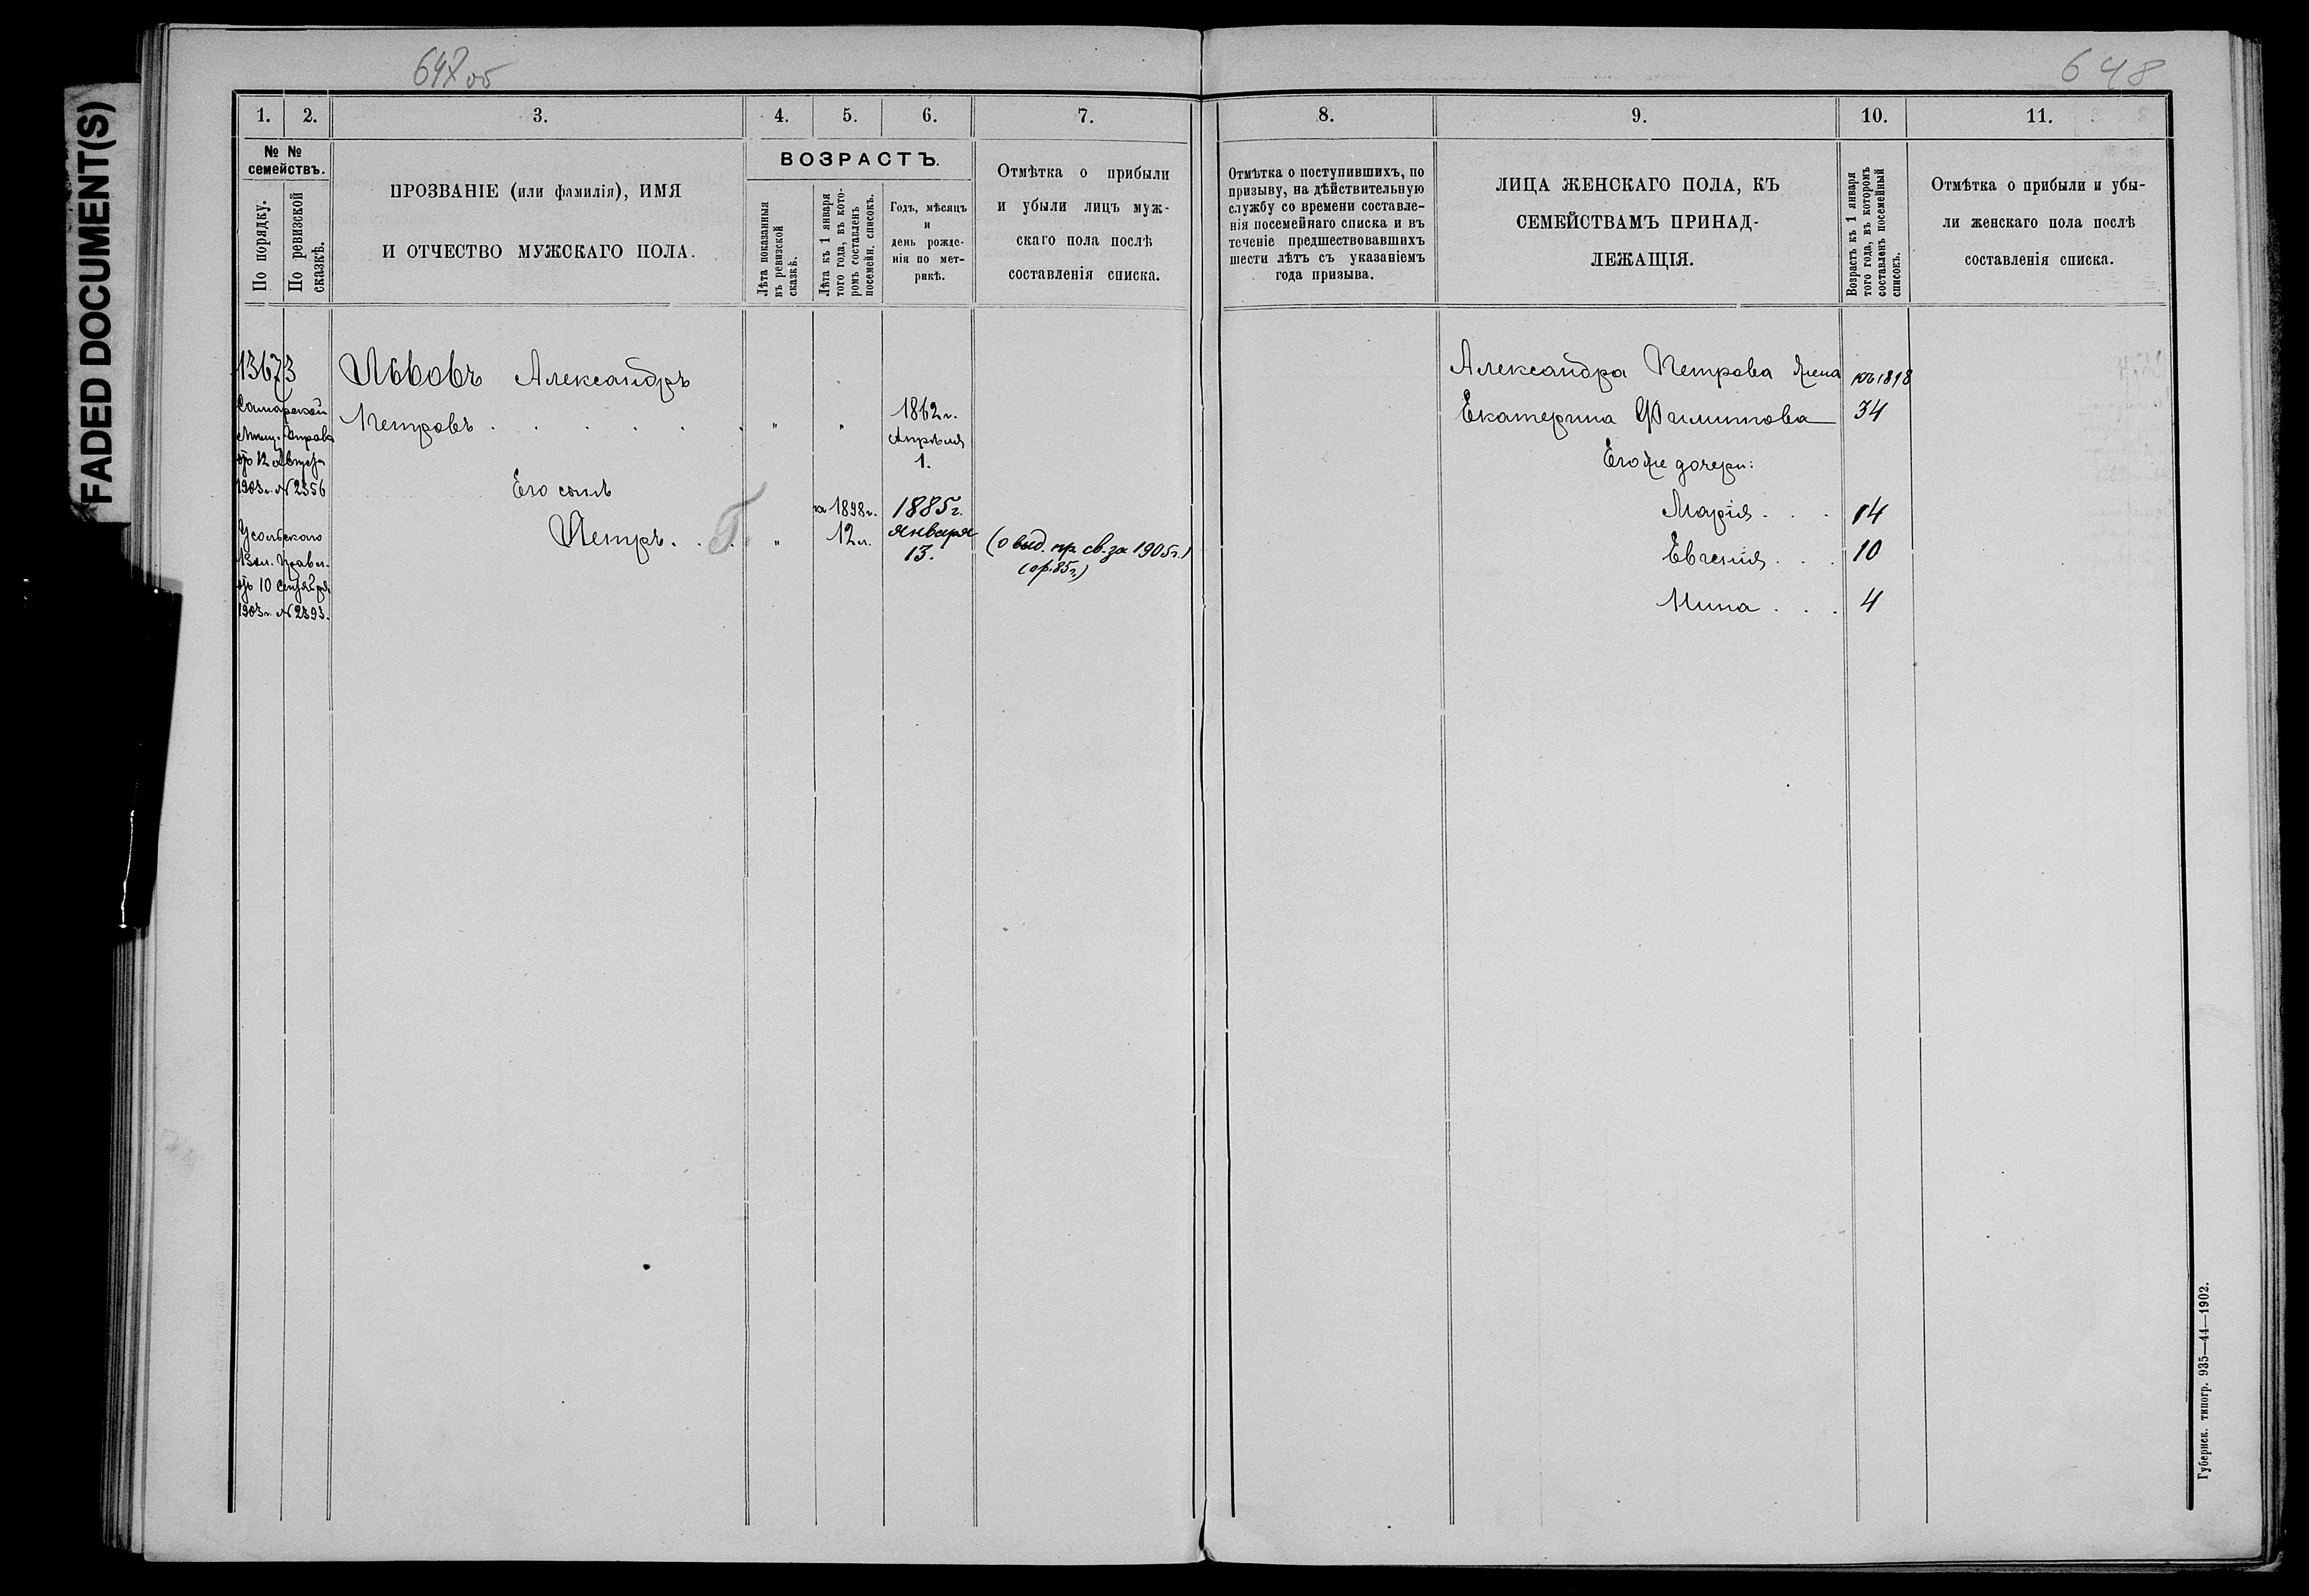 FADED DOCUMENT(S)
647 об
648
1. 2. 3. 4. 5. 6. 7.
№ №
семействъ.
По порядку.
По ревизской
сказкѣ.
ПРОЗВАНІЕ (или фамилія), ИМЯ
И ОТЧЕСТВО МУЖСКАГО ПОЛА.
ВОЗРАСТЪ.
Лѣта показанныя
въ ревизской
сказкѣ.
Лѣта къ 1 января
того года, въ кото-
ромъ составленъ
посемейн. списокъ.
Годъ, мѣсяцъ
и
день рожде-
нія по мет-
рикѣ.
Отмѣтка о прибыли
и убыли лицъ муж-
скаго пола послѣ
составленія списка.
13673
Самарской
Мѣщ. Управы
отъ 12 Августа
1903 г. № 2356
Усольскаго
Вол. Правл.
отъ 10 Сентября
1903 г. № 2393.
Львовъ Александръ
Петровъ . . . . . . " "
1862 г.
Апрѣля
1.
Его сынъ
Петръ . . . "
къ 1898 г.
12 л.
1885 г.
Января
13.
(о выд. пр. св. за 1905 г.)
(ор. 85 г.)
8. 9. 10. 11.
Отмѣтка о поступившихъ, по
призыву, на дѣйствительную
службу со времени составле-
нія посемейнаго списка и въ
теченіе предшествовавшихъ
шести лѣтъ съ указаніемъ
года призыва.
ЛИЦА ЖЕНСКАГО ПОЛА, КЪ
СЕМЕЙСТВАМЪ ПРИНАД-
ЛЕЖАЩІЯ.
Возрастъ къ 1 января
того года, въ которомъ
составленъ посемейный
списокъ.
Отмѣтка о прибыли и убы-
ли женскаго пола послѣ
составленія списка.
Александра Петрова жена къ 1898
Екатерина Филиппова 34
Его же дочери:
Марія . . . 14
Евгенія . . . 10
Нина . . . 4
Губернск. типогр. 935—44—1902.